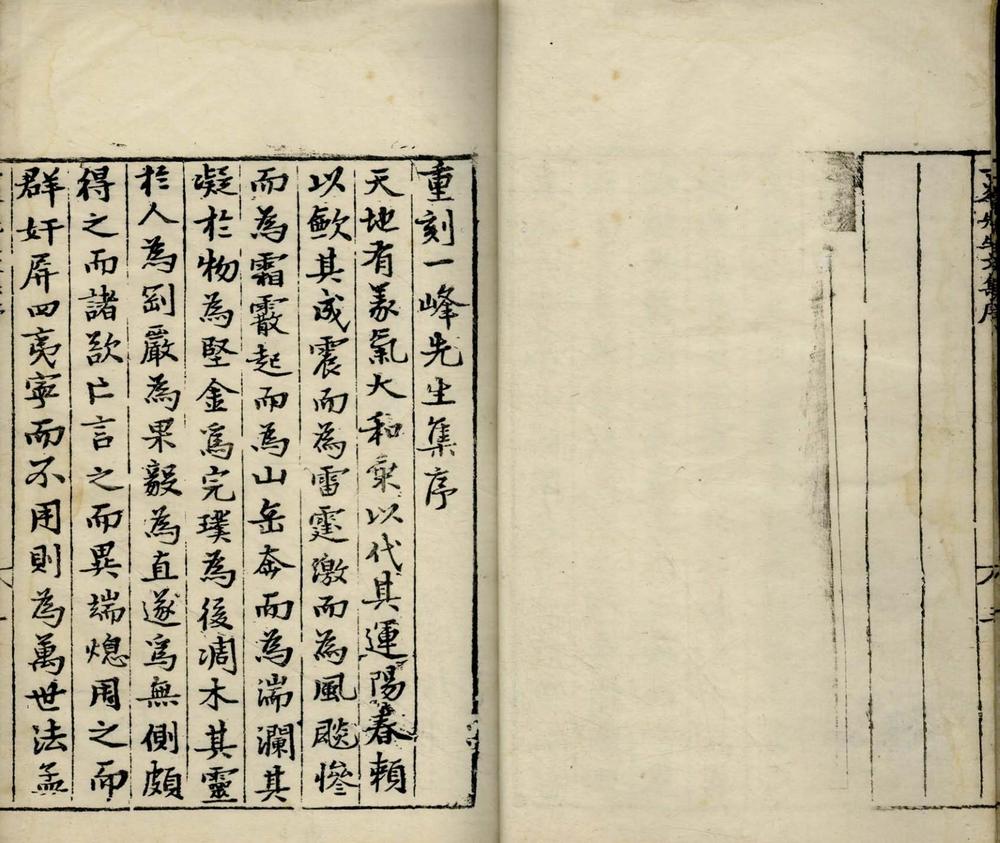 重刻一峰先生集序
天地有義氣大和乘以代其運陽春賴
以歛其成震而為雷霆激而為風飈慘
而為霜霰起而為山岳奔而為湍瀾其
凝於物為堅金爲完璞為後凋木其靈
於人為剛嚴為果毅為直遂爲無側頗
得之而諸欲亡言之而異端熄用之而
群奸屏四夷寧而不用則為萬世法孟